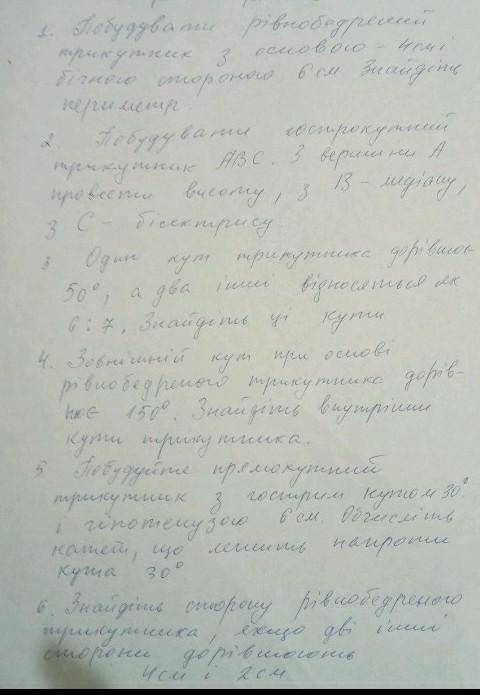 1. Побудувати рівнобедрений
трикутник з основою - 4см і
бічною стороною 6 см Знайдіть
периметр.
2. Побудувати гострокутний
трикутник АВС. З вершини А
провести висоту, з В - медіану,
з С - бісектрису.
3 Один кут трикутника дорівнює
50°, а два інші відносяться як
6 : 7. Знайдіть ці кути
4. Зовнішній кут при основі
рівнобедреного трикутника дорів-
нює 150°. Знайдіть внутрішні
кути трикутника.
5 Побудуйте прямокутний
трикутник з гострим кутом 30°
і гіпотенузою 6 см. Обчисліть
катет, що лежить напроти
кута 30°
6. Знайдіть сторону рівнобедреного
трикутника, якщо дві інші
сторони дорівнюють
4см і 2см